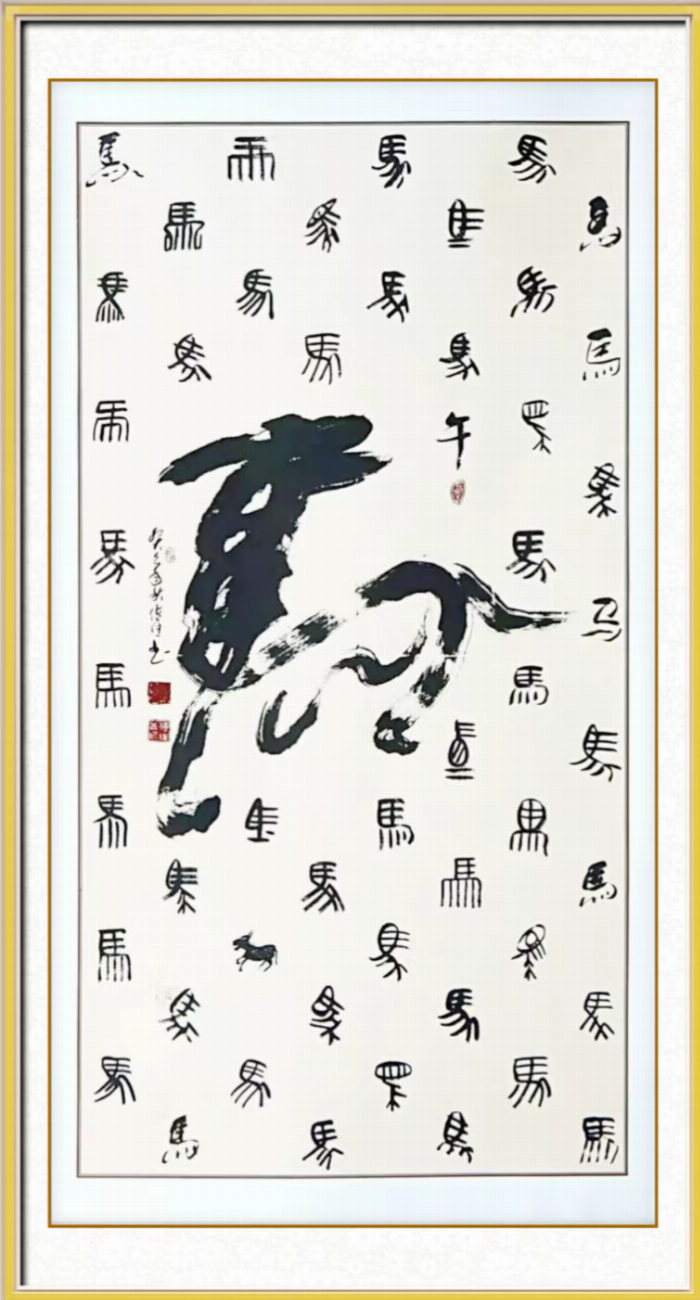 馬 馬 馬 馬
馬 馬 馬 馬
馬 馬 馬 馬
馬 馬 馬 馬
馬 午 馬
馬
馬 馬
馬
马
馬 馬
馬 馬
馬 馬 馬 馬
馬 馬 馬 馬
馬 馬 馬
馬 馬 馬 馬
馬 馬 馬 馬
馬 馬 馬 馬